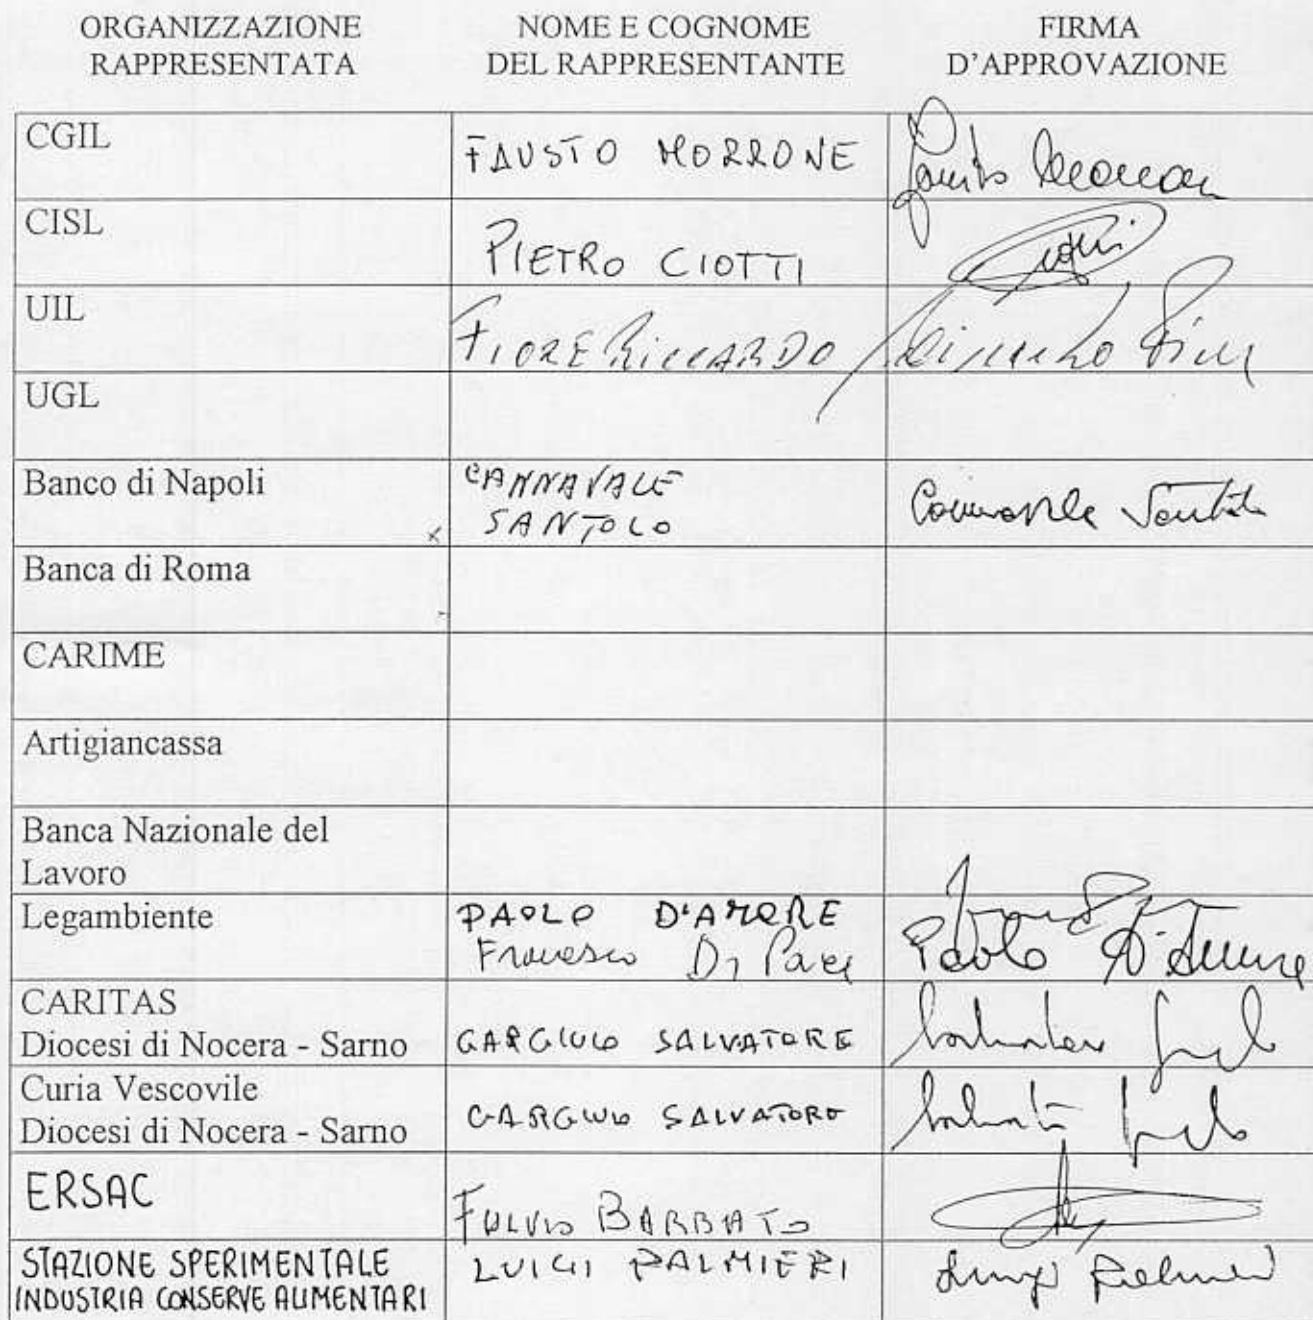 ORGANIZZAZIONE RAPPRESENTATA
NOME E COGNOME DEL RAPPRESENTANTE
FIRMA D'APPROVAZIONE
CGIL
FAUSTO MORRONE
CISL
PIETRO CIOTTI
UIL
FIORE RICCARDO
UGL
Banco di Napoli
CANNAVALE
SANTOLO
Cannavale Santolo
Banca di Roma
CARIME
Artigiancassa
Banca Nazionale del
Lavoro
Legambiente
PAOLO D'AMORE
Francesco Di Pace
Paolo D'Amore
CARITAS
Diocesi di Nocera - Sarno
GARGIULO SALVATORE
Curia Vescovile
Diocesi di Nocera - Sarno
GARGIULO SALVATORE
ERSAC
FULVIO BARBATO
STAZIONE SPERIMENTALE
INDUSTRIA CONSERVE ALIMENTARI
LUIGI PALMIERI
Luigi Palmieri